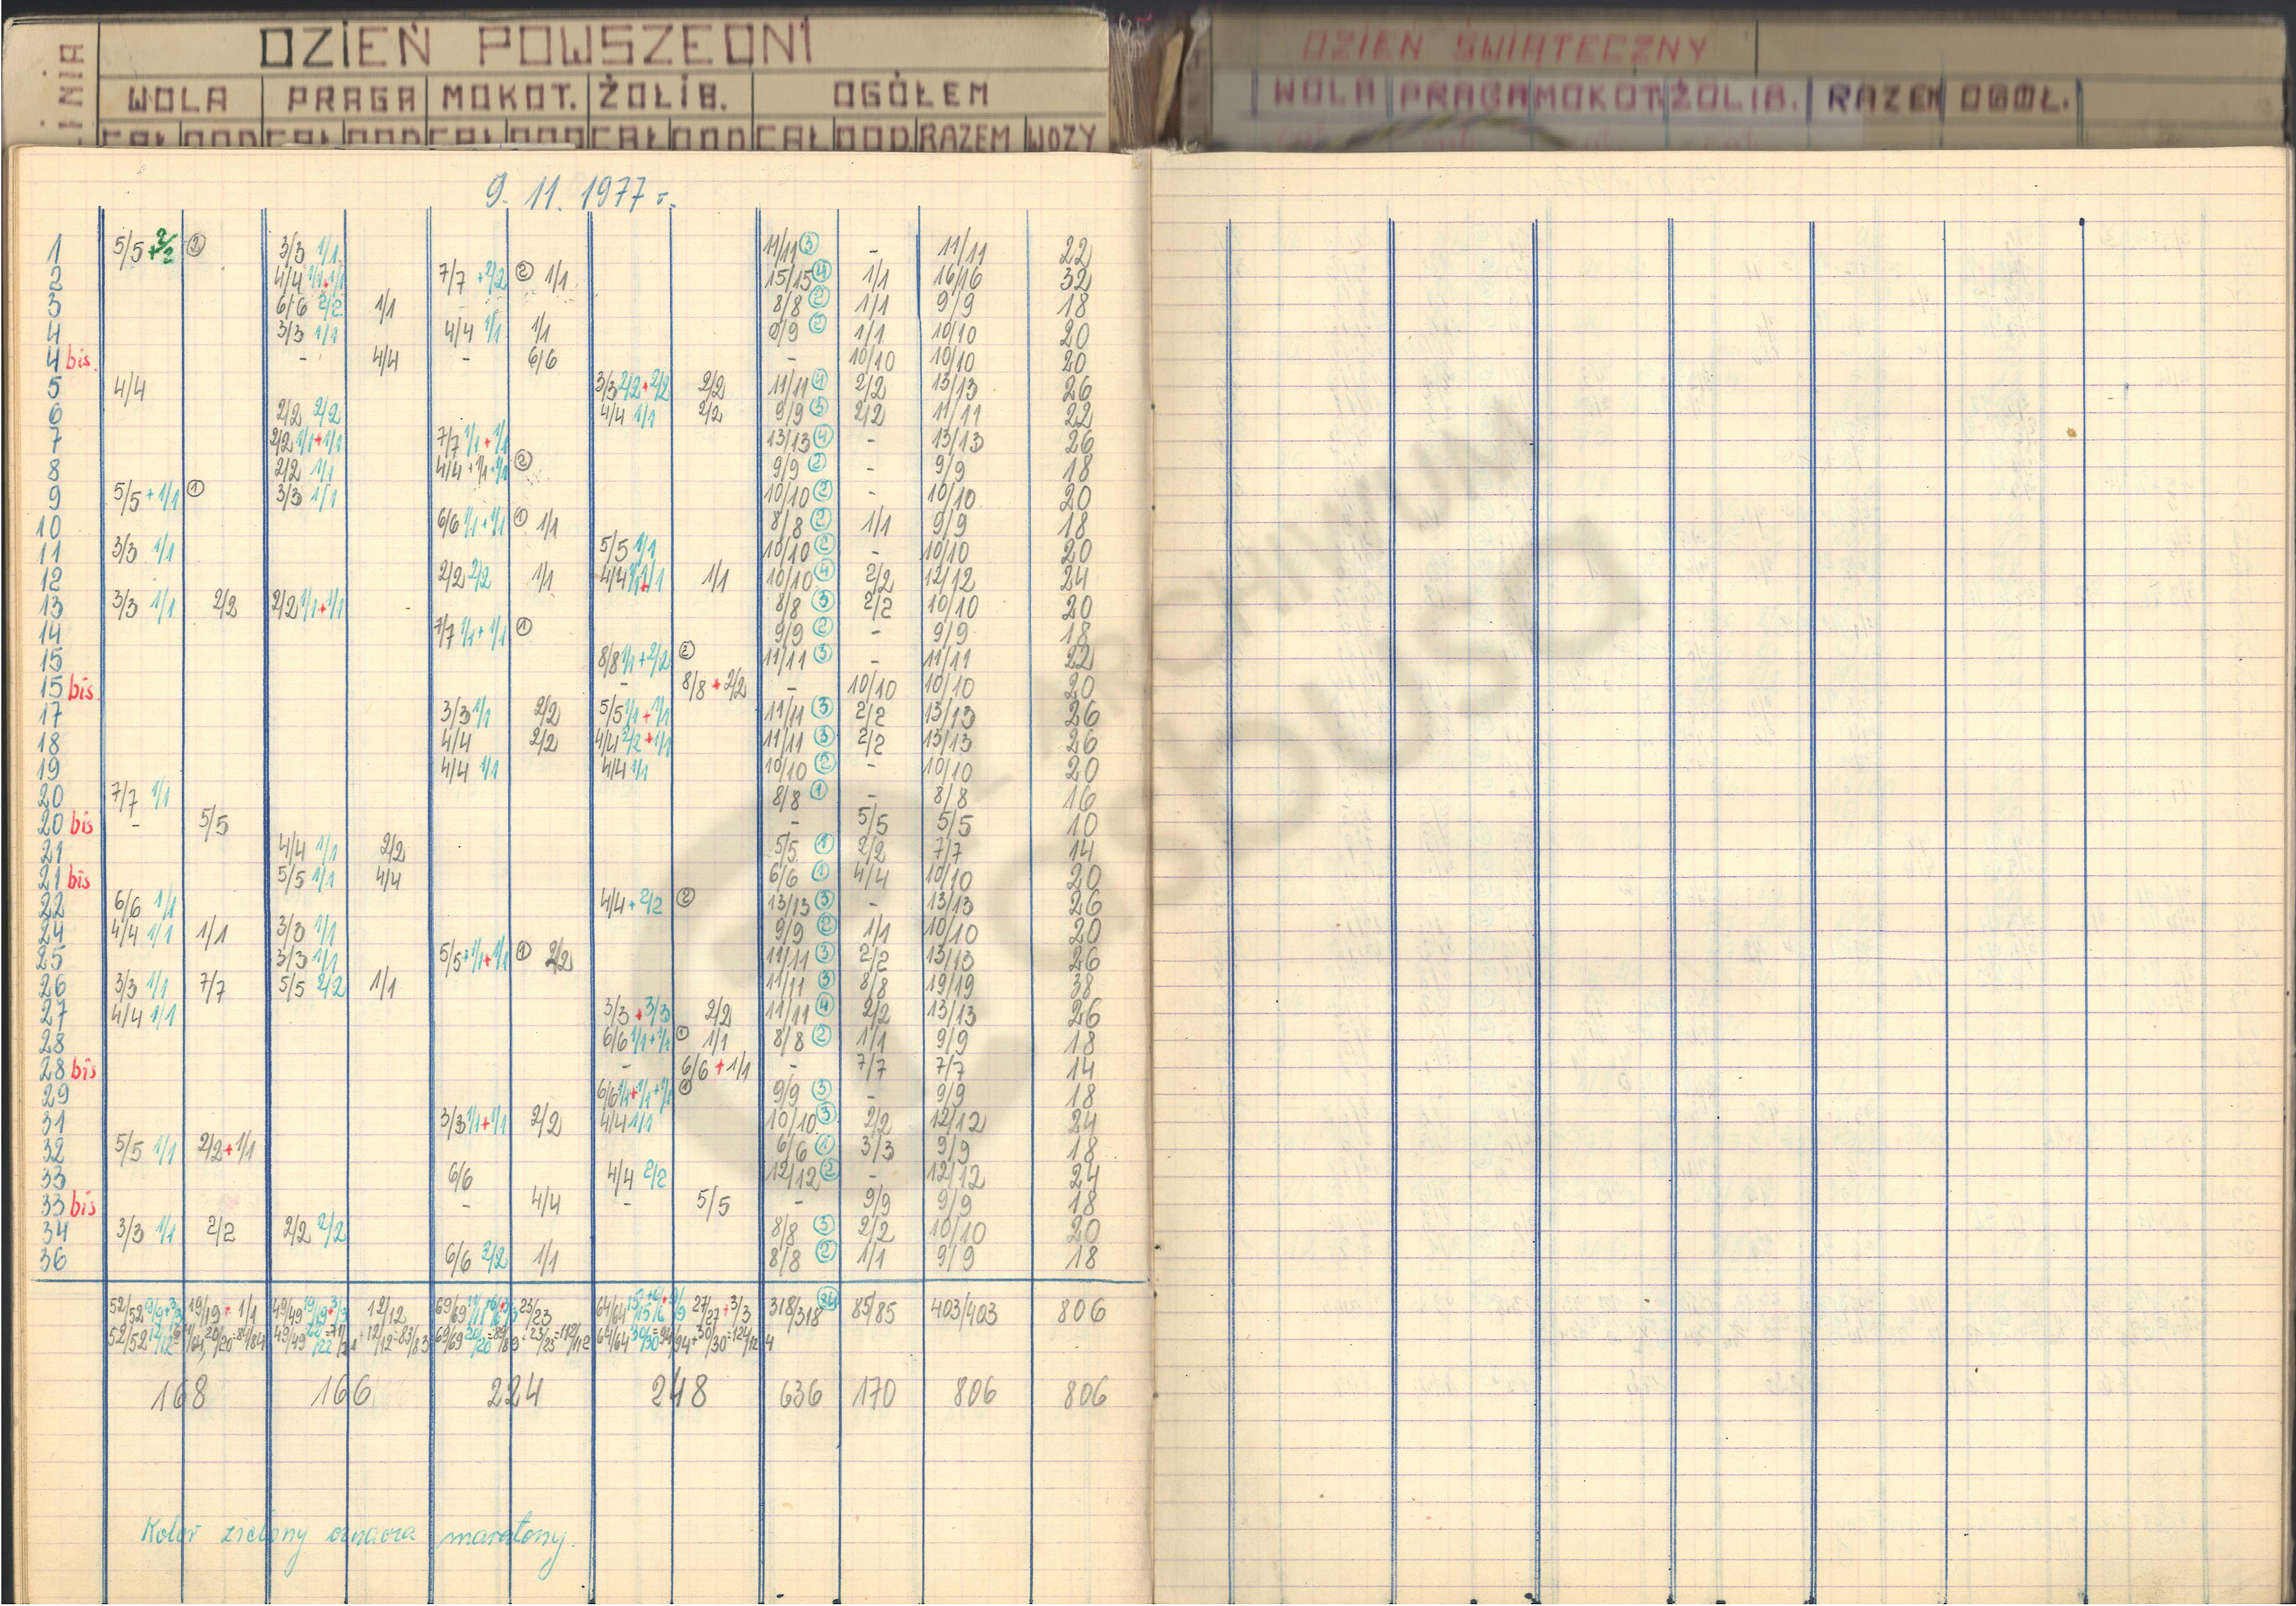 DZIEŃ POWSZEDNI
DZIEŃ ŚWIĄTECZNY
WOLA PRAGA MOKOT. ŻOLIB. OGÓŁEM
WOLA PRAGA MOKOT ŻOLIB. RAZEM OGÓŁ.
CAŁ DOD CAŁ DOD CAŁ DOD CAŁ DOD CAŁ DOD. RAZEM WOZY
9. 11. 1977 r.
1 5/5 + 2/2 ② 3/3 1/1 11/11 ③ - 11/11 22
2 4/4 1/1+1/1 7/7 + 2/2 ② 1/1 15/15 ④ 1/1 16/16 32
3 6/6 2/2 1/1 - 8/8 ② 1/1 9/9 18
4 3/3 1/1 4/4 1/1 1/1 9/9 ② 1/1 10/10 20
4 bis. - 4/4 - 6/6 - 10/10 10/10 20
5 4/4 3/3 2/2 + 2/2 2/2 11/11 ④ 2/2 13/13 26
6 2/2 2/2 4/4 1/1 2/2 9/9 ③ 2/2 11/11 22
7 2/2 1/1+1/1 7/7 1/1 + 1/1 13/13 ④ - 13/13 26
8 2/2 1/1 4/4 + 1/1 + 1/1 ② 9/9 ② - 9/9 18
9 5/5 + 1/1 ① 3/3 1/1 10/10 ② - 10/10 20
10 6/6 1/1 + 1/1 ① 1/1 8/8 ② 1/1 9/9 18
11 3/3 1/1 5/5 1/1 10/10 ② - 10/10 20
12 2/2 2/2 1/1 4/4 1/1+1/1 1/1 10/10 ④ 2/2 12/12 24
13 3/3 1/1 2/2 2/2 1/1+1/1 8/8 ③ 2/2 10/10 20
14 7/7 1/1 + 1/1 ① 9/9 ② - 9/9 18
15 8/8 1/1 + 2/2 ② 11/11 ③ - 11/11 22
15 bis. - 8/8 + 2/2 - 10/10 10/10 20
17 3/3 1/1 2/2 5/5 1/1 + 1/1 11/11 ③ 2/2 13/13 26
18 4/4 2/2 4/4 2/2 + 1/1 11/11 ③ 2/2 13/13 26
19 4/4 1/1 4/4 1/1 10/10 ② - 10/10 20
20 7/7 1/1 8/8 ① - 8/8 16
20 bis - 5/5 - 5/5 5/5 10
21 4/4 1/1 2/2 5/5 ① 2/2 7/7 14
21 bis 5/5 1/1 4/4 6/6 ① 4/4 10/10 20
22 6/6 1/1 4/4 + 2/2 ② 13/13 ③ - 13/13 26
24 4/4 1/1 1/1 3/3 1/1 9/9 ② 1/1 10/10 20
25 3/3 1/1 5/5 + 1/1 + 1/1 ① 2/2 11/11 ③ 2/2 13/13 26
26 3/3 1/1 7/7 5/5 2/2 1/1 11/11 ③ 8/8 19/19 38
27 4/4 1/1 3/3 + 3/3 2/2 11/11 ④ 2/2 13/13 26
28 6/6 1/1 + 1/1 ① 1/1 8/8 ② 1/1 9/9 18
28 bis - 6/6 + 1/1 - 7/7 7/7 14
29 6/6 1/1 + 1/1 + 1/1 ① 9/9 ③ - 9/9 18
31 3/3 1/1 + 1/1 2/2 4/4 1/1 10/10 ③ 2/2 12/12 24
32 5/5 1/1 2/2 + 1/1 6/6 ① 3/3 9/9 18
33 6/6 4/4 2/2 12/12 ② - 12/12 24
33 bis - 4/4 - 5/5 - 9/9 9/9 18
34 3/3 1/1 2/2 2/2 2/2 8/8 ③ 2/2 10/10 20
36 6/6 2/2 1/1 8/8 ② 1/1 9/9 18
52/52 9/9+3/3 19/19 + 1/1 49/49 19/19+3/3 12/12 69/69 23/23 64/64 27/27 + 3/3 318/318 85/85 403/403 806
52/52 12/12 = 64/64, 20/20 = 84/84 49/49 22/22 = 71/71 + 12/12 = 83/83 69/69 20/20 = 89/89 + 23/23 = 112/112 64/64 30/30 = 94/94 + 30/30 = 124/124
168 166 224 248 636 170 806 806
Kolor zielony oznacza maratony.